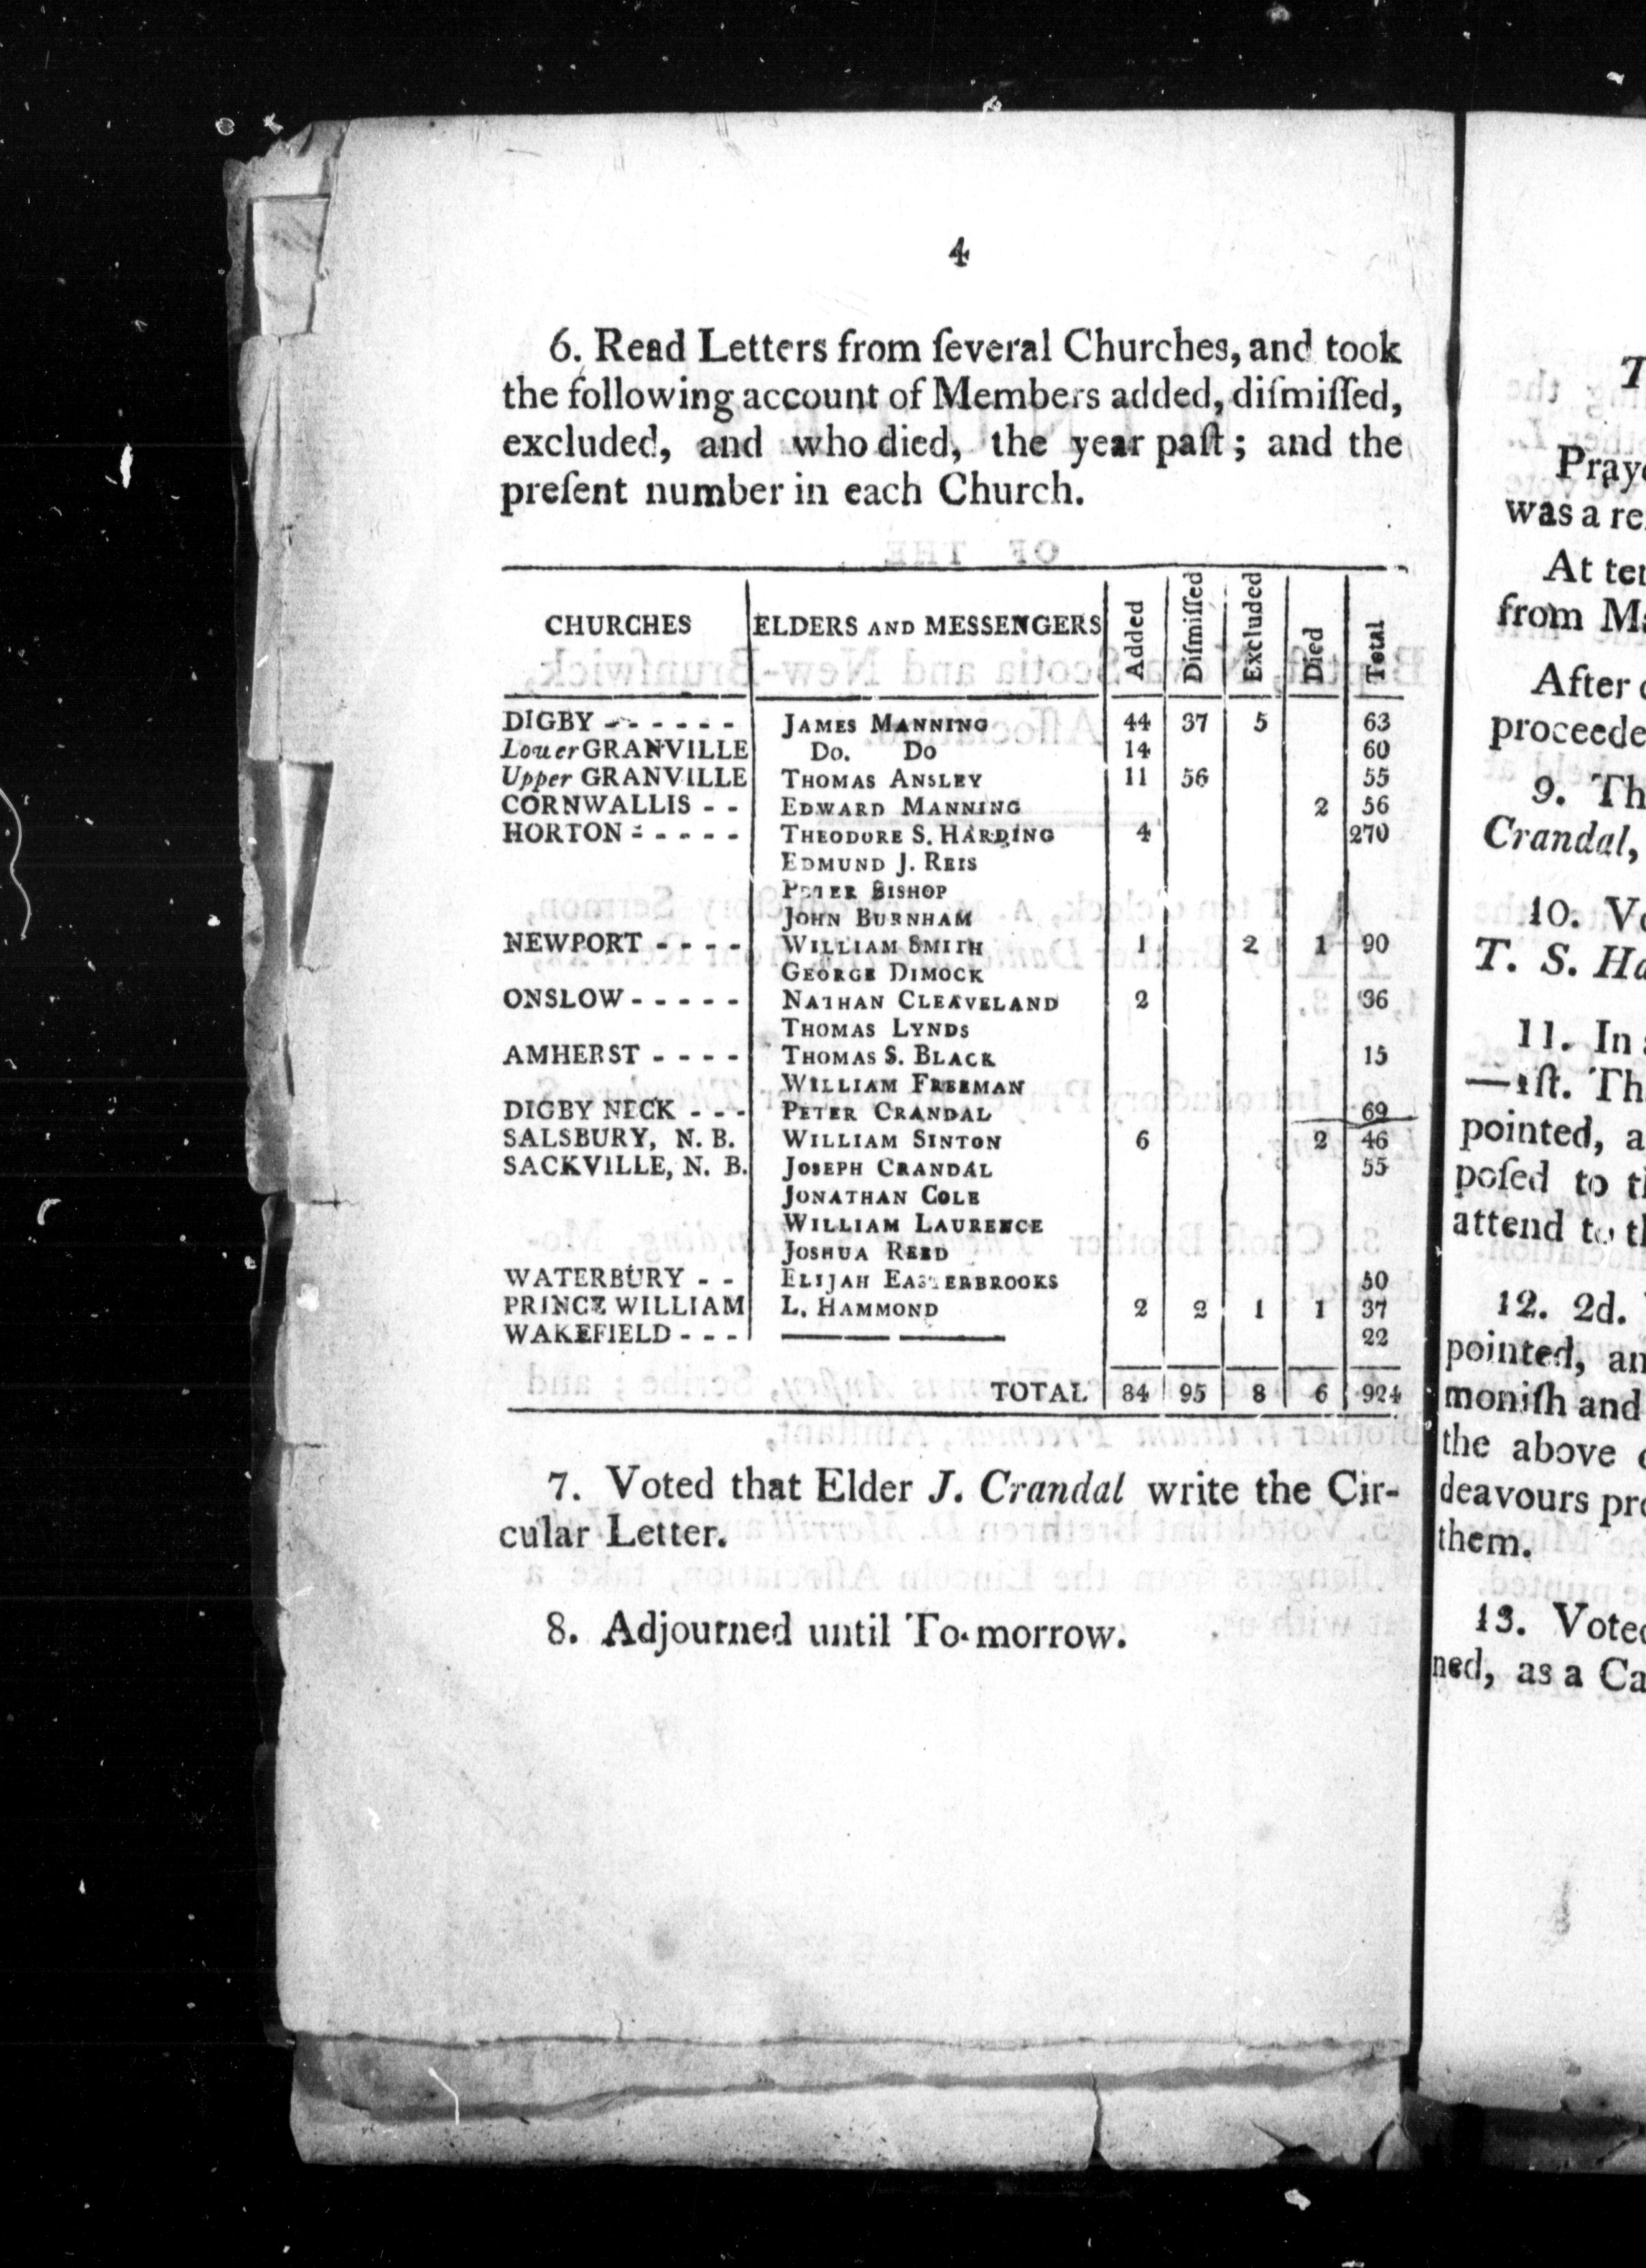 4
6. Read Letters from ſeveral Churches, and took
the following account of Members added, diſmiſſed,
excluded, and who died, the year paſt; and the
preſent number in each Church.
CHURCHES ELDERS AND MESSENGERS Added Diſmiſſed Excluded Died Total
DIGBY - - - - - - JAMES MANNING 44 37 5 63
Lower GRANVILLE Do. Do 14 60
Upper GRANVILLE THOMAS ANSLEY 11 56 55
CORNWALLIS - - EDWARD MANNING 2 56
HORTON - - - - - THEODORE S. HARDING 4 270
EDMUND J. REIS
PETER BISHOP
JOHN BURNHAM
NEWPORT - - - - WILLIAM SMITH 1 2 1 90
GEORGE DIMOCK
ONSLOW - - - - - NATHAN CLEAVELAND 2 36
THOMAS LYNDS
AMHERST - - - - THOMAS S. BLACK 15
WILLIAM FREEMAN
DIGBY NECK - - - PETER CRANDAL 69
SALSBURY, N. B. WILLIAM SINTON 6 2 46
SACKVILLE, N. B. JOSEPH CRANDAL 55
JONATHAN COLE
WILLIAM LAURENCE
JOSHUA REED
WATERBURY - - ELIJAH EASTERBROOKS 50
PRINCE WILLIAM L. HAMMOND 2 2 1 1 37
WAKEFIELD - - - 22
TOTAL 84 95 8 6 924
7. Voted that Elder J. Crandal write the Cir-
cular Letter.
8. Adjourned until To-morrow.
T
Praye
was a re
At ten
from Ma
After
proceede
9. Th
Crandal,
10. Vo
T. S. Ha
11. In
—1ſt. Th
pointed, a
poſed to th
attend to th
12. 2d.
pointed, an
moniſh and
the above
deavours pre
them.
13. Voted
ned, as a Ca